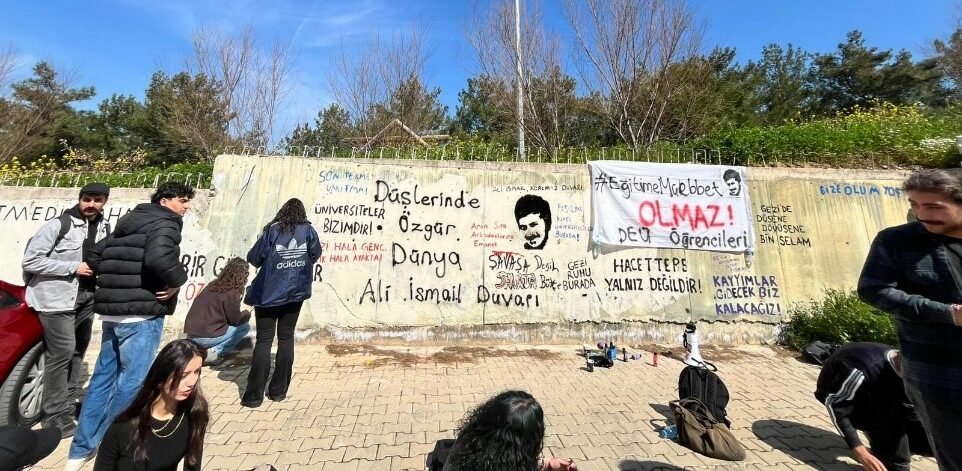 SON
UMUTMA!
ÜNİVERSİTELER
BİZİMDİR!
HALA GENÇ,
HALA AYAKTA!
BİR
adidas
Düşlerinde
Özgür
Dünya
Ali İsmail Duvarı
ALİ İSMAİL, KOREMİZ DUVARI
Anın Sıra
Arkadaşlarına
Emanet
SAVAŞA Değil
GEZİ
RUHU
BURADA
BURADA!
#EğitimeMürebbet
OLMAZ!
DEÜ Öğrencileri
HACETTEPE
YALNIZ DEĞİLDİR!
KAYYIMLAR
GİDECEK BİZ
KALACAĞIZ!
GEZİ'DE
DÜŞENE
DÖVÜŞENE
BİN SELAM
BİZE ÖLÜM YOK